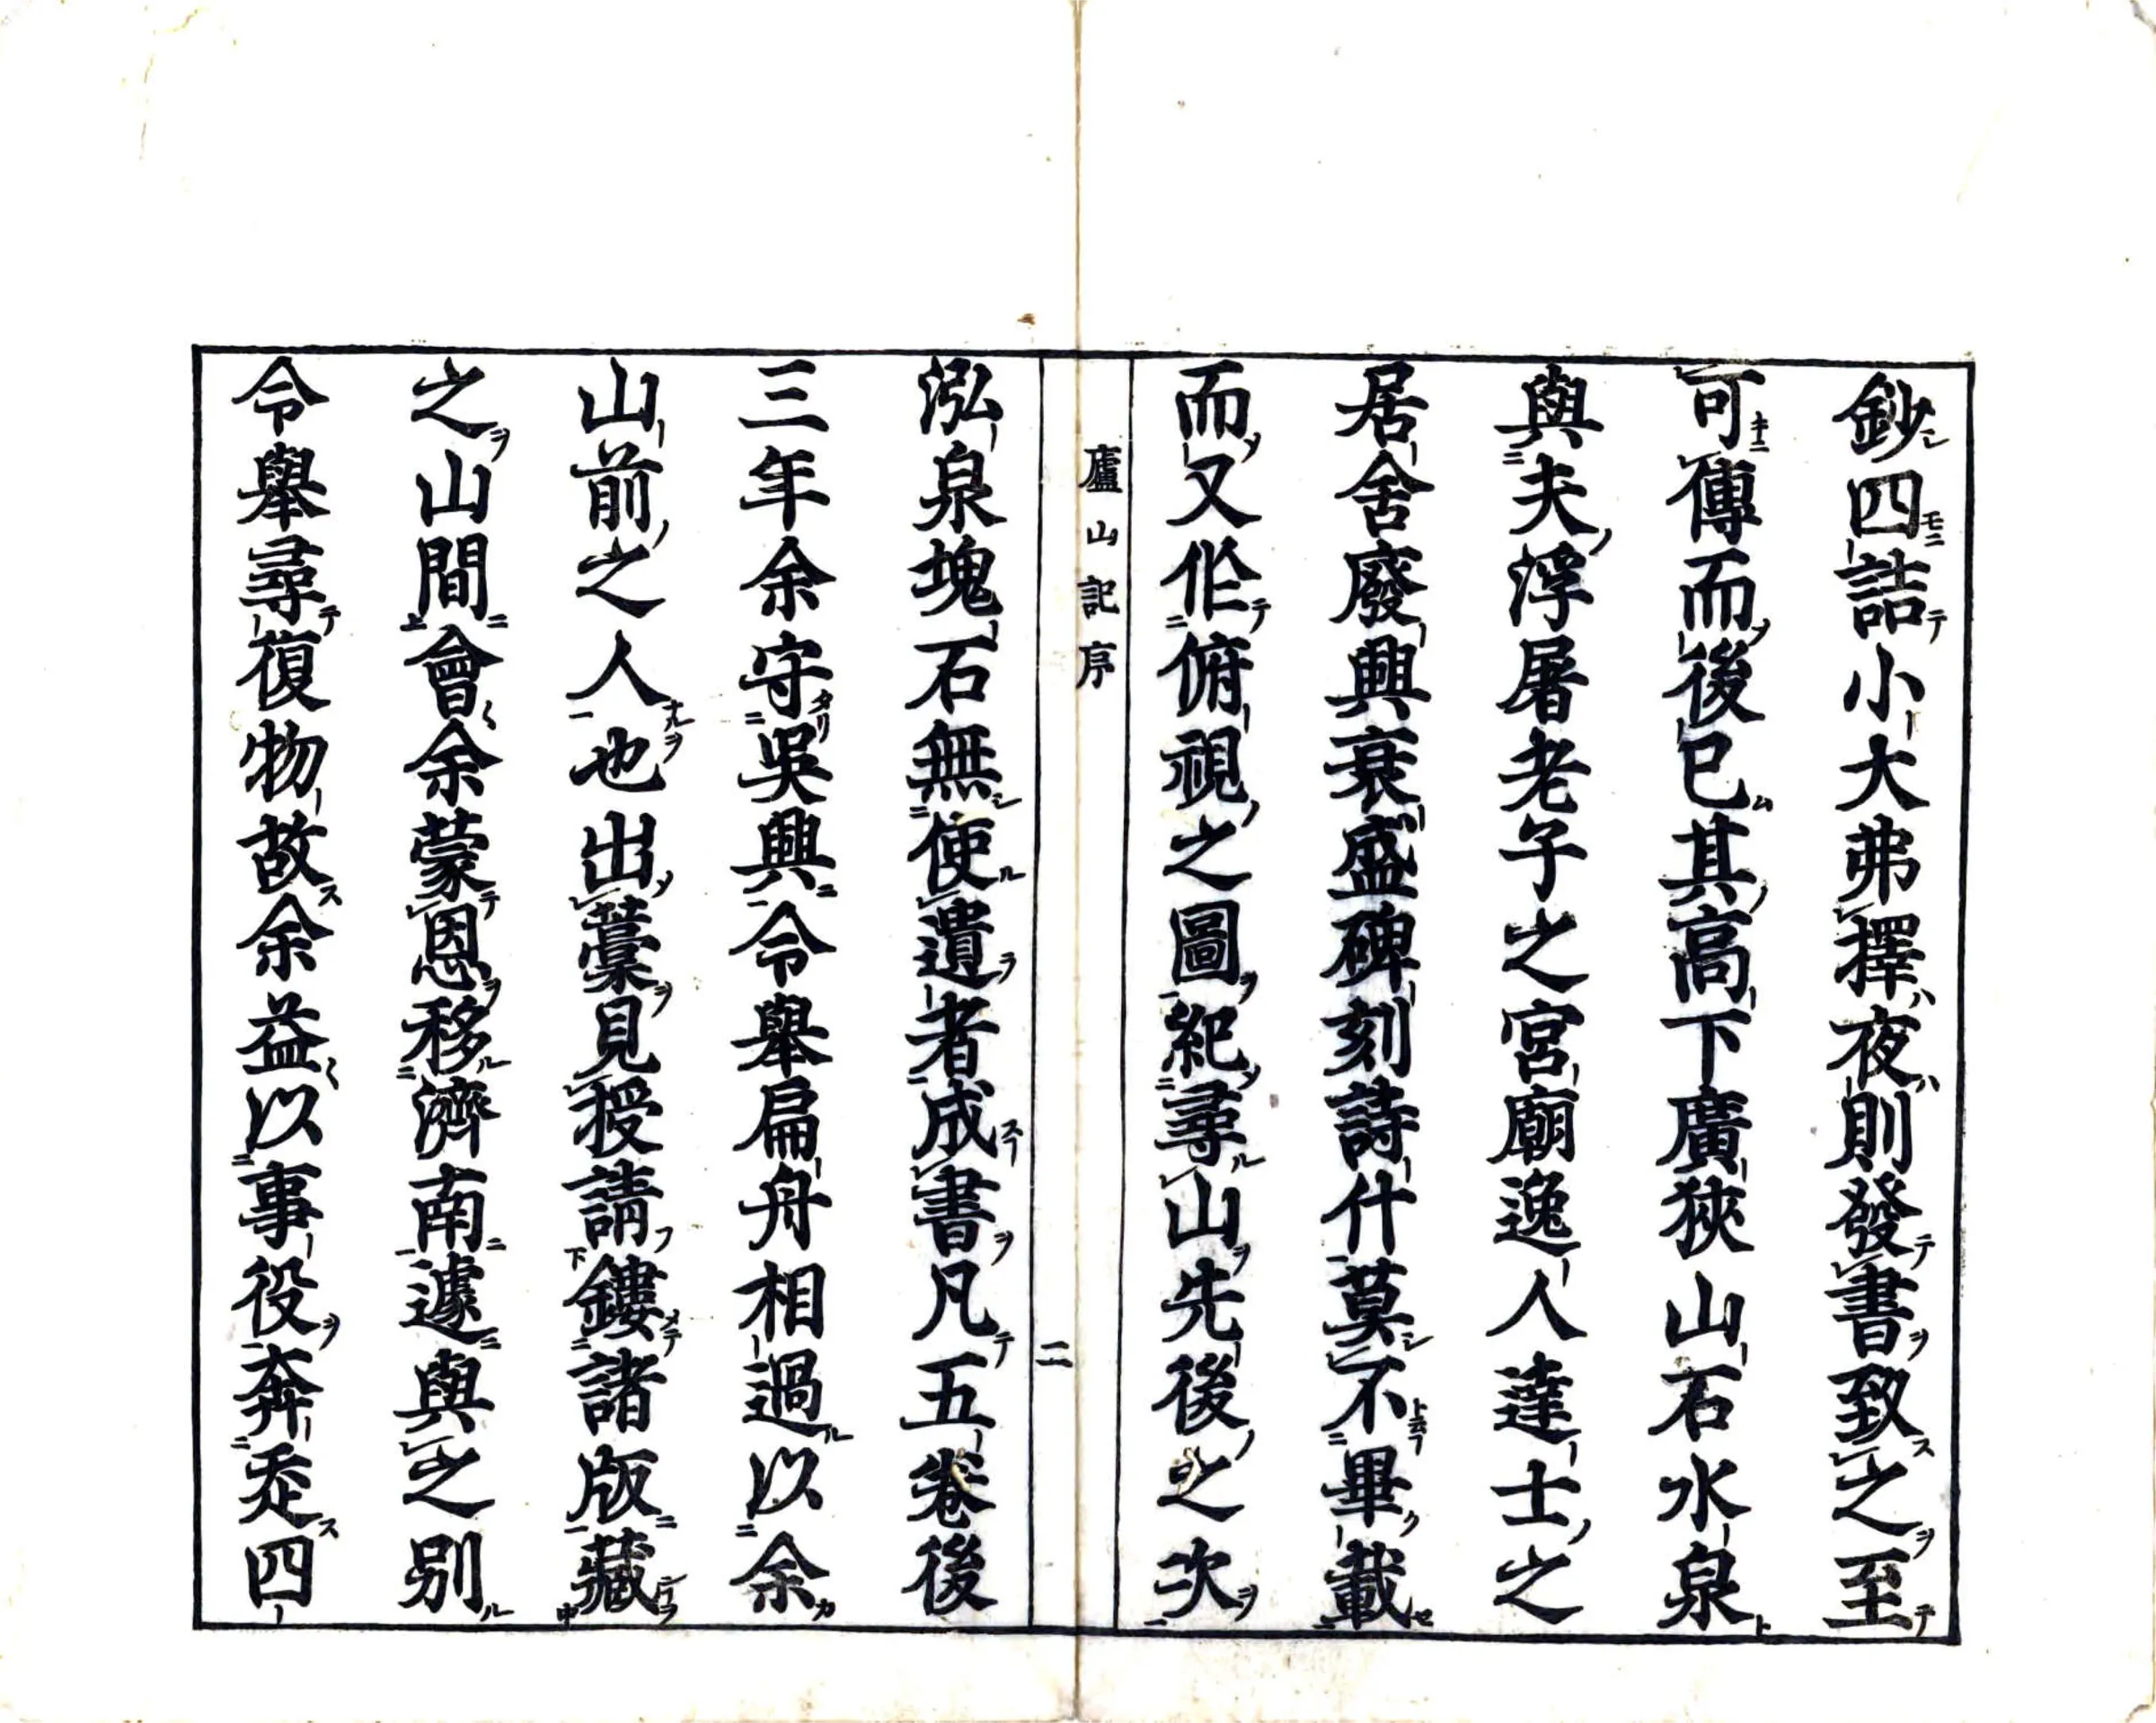 鈔四詰小大弗擇夜則發書致之至
可傳而後已其高下廣狹山石水泉
與夫浮屠老子之宮廟逸人達士之
居舍廢興衰盛碑刻詩什莫不畢載
而又作俯視之圖紀尋山先後之次
廬山記序　二
泓泉塊石無使遺者成書凡五卷後
三年余守吳興令舉扁舟相過以余
山前之人也出藁見授請鏤諸版藏
之山間會余蒙恩移濟南遽與之别
令舉尋復物故余益以事役奔走四